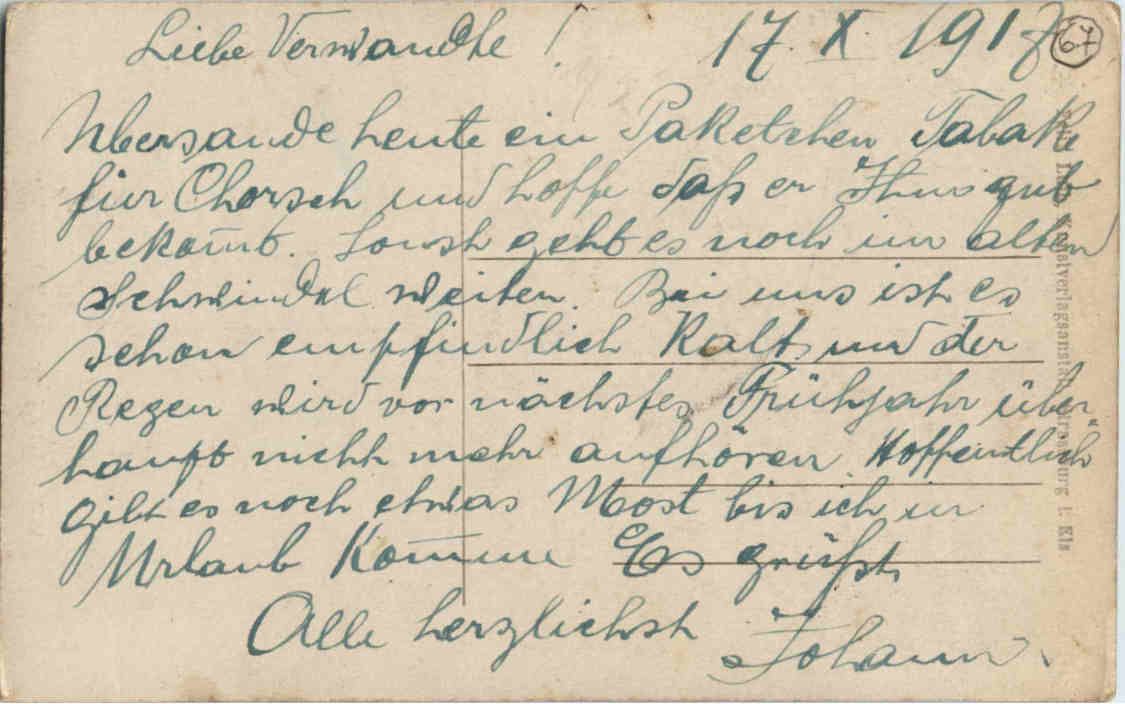 Liebe Verwandte! 17. X. 1917
67
Übersande heute ein Paketchen Tabak
für Chorsch und hoffe daß er Ihm gut
bekom̅t. Sonst geht es noch im alten
Schwindel weiter. Bei uns ist es
schon empfindlich Kalt und der
Regen wird vor nächstes Frühjahr über-
haupt nicht mehr aufhören. Hoffentlich
gibt es noch etwas Most bis ich in
Urlaub Kom̅e Es grüßt
Alle herzlichst Johann.
Kunstverlagsanstalt Strassburg i. Els